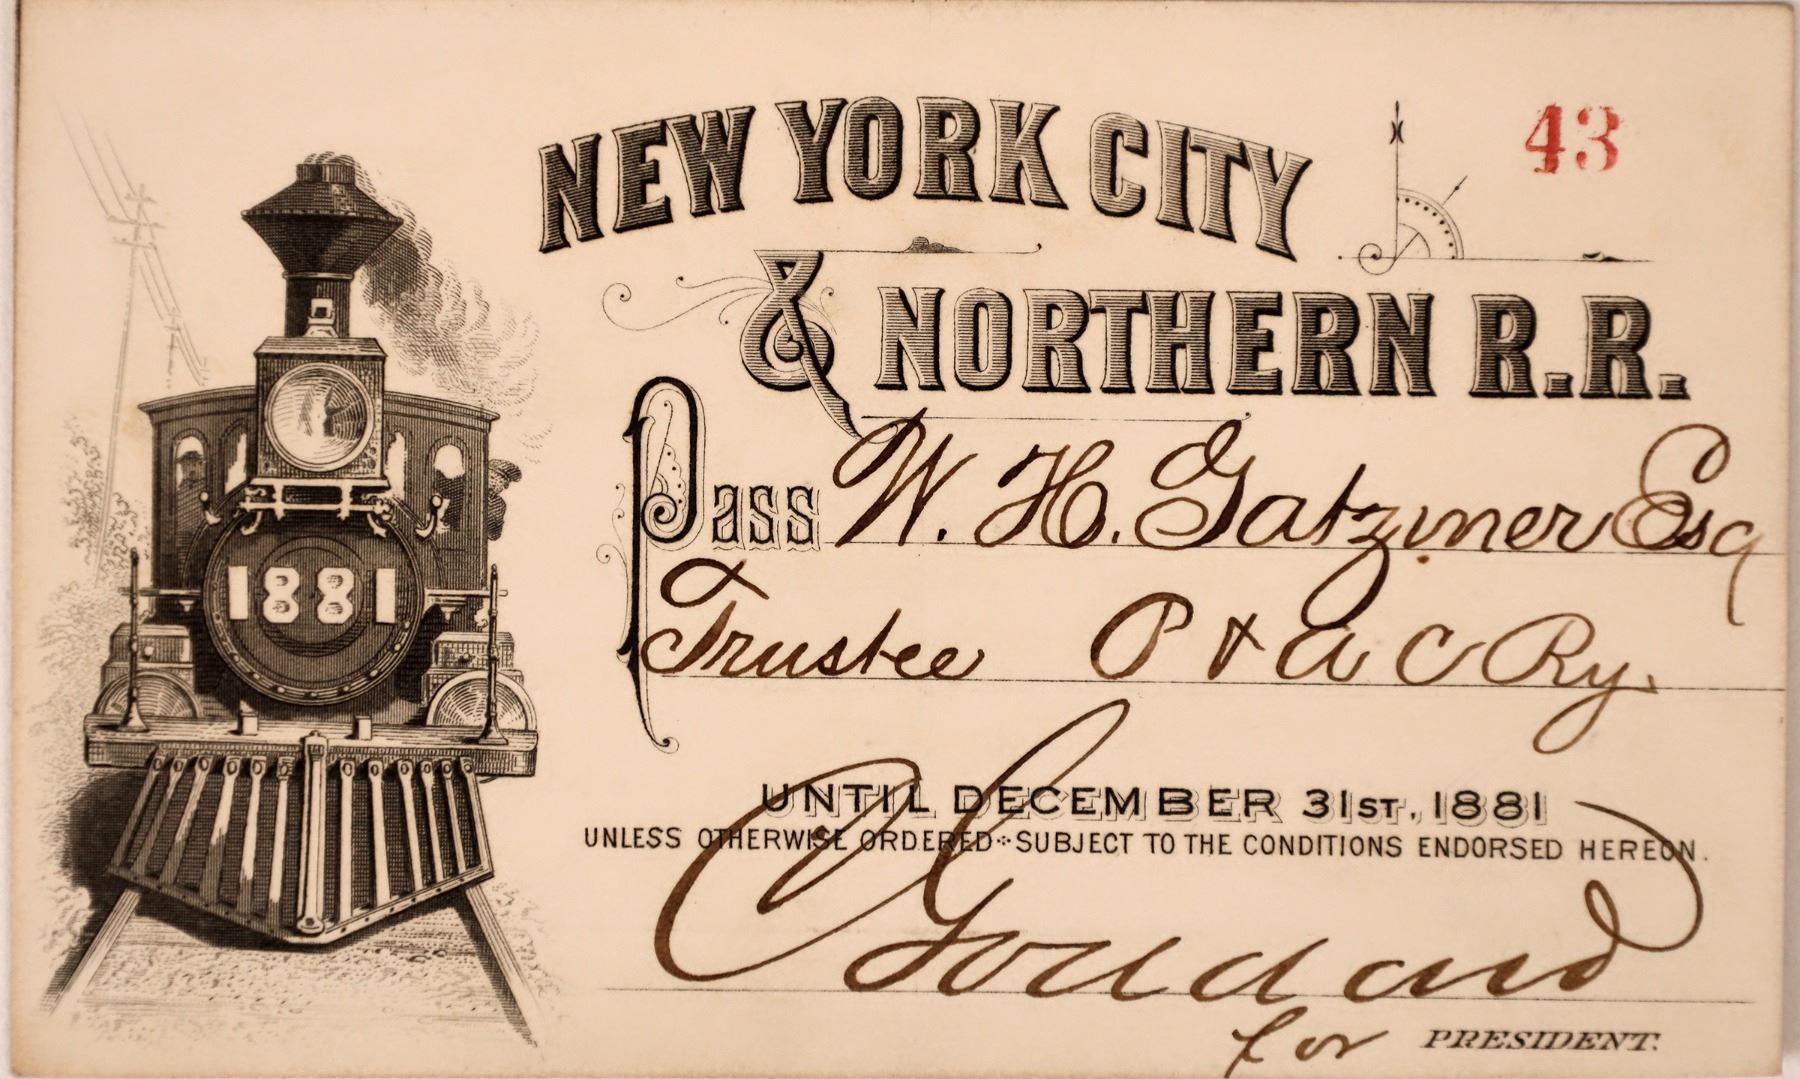 NEW YORK CITY
43
& NORTHERN R.R.
Pass W. H. Gatzmer Esq
Trustee P & A C Ry.
UNTIL DECEMBER 31ST, 1881
UNLESS OTHERWISE ORDERED SUBJECT TO THE CONDITIONS ENDORSED HEREON.
for PRESIDENT.
1881